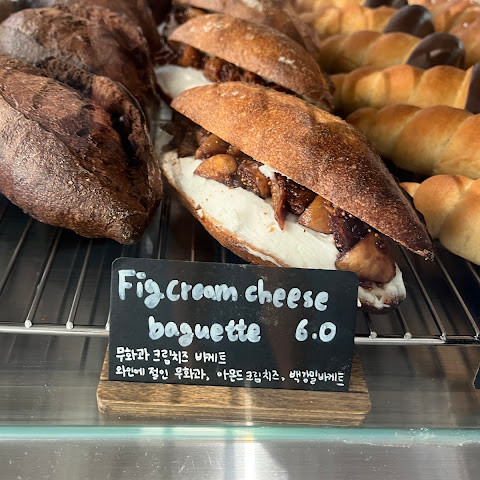 Fig.cream cheese
baguette 6.0
무화과 크림치즈 바게트
와인에 절인 무화과, 아몬드크림치즈, 백강밀바게트